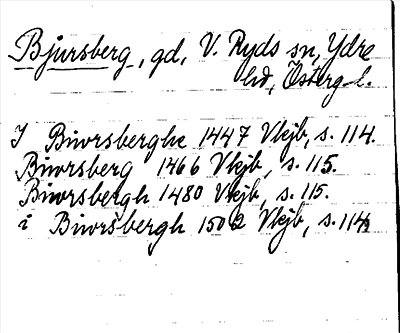 Bjursberg, gd, V. Ryds sn, Ydre
hd, Österg. l.
I Biwrsberghe 1447 Vkjb, s. 114.
Biwrsberg 1466 Vkjb, s. 115.
Biwrsbergh 1480 Vkjb, s. 115.
i Biwrsbergh 1502 Vkjb, s. 114